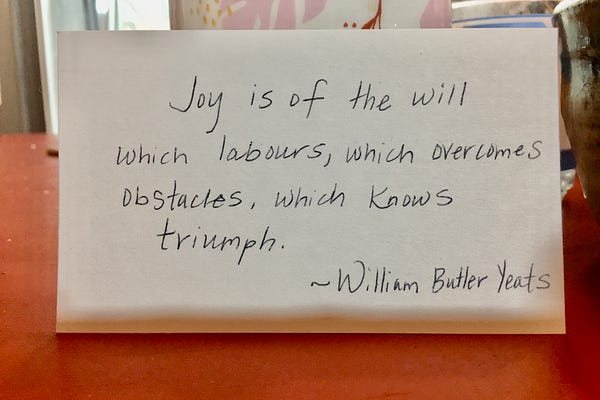 Joy is of the will
which labours, which overcomes
obstacles, which knows
triumph.
~William Butler Yeats